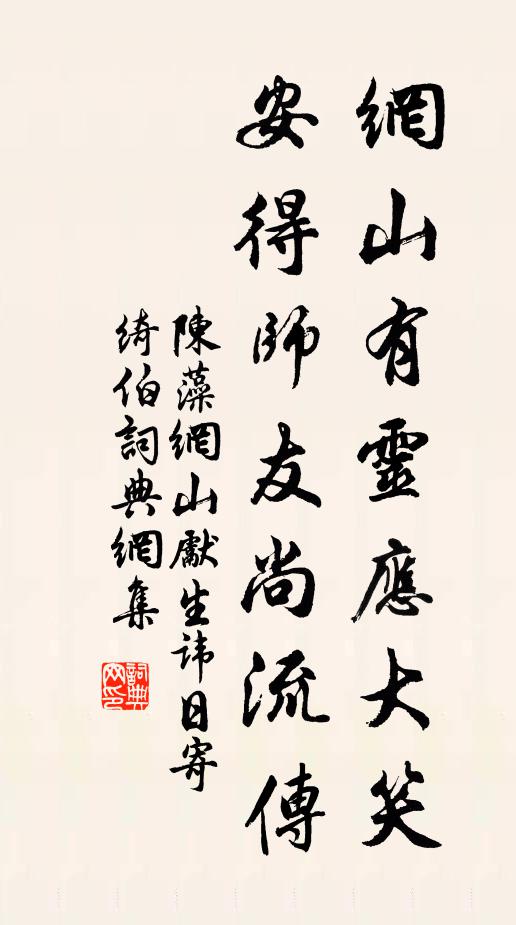 網山有靈應大笑
安得師友尚流傳
陳藻網山獻生諱日寄
綺伯詞典網集
詞典網印